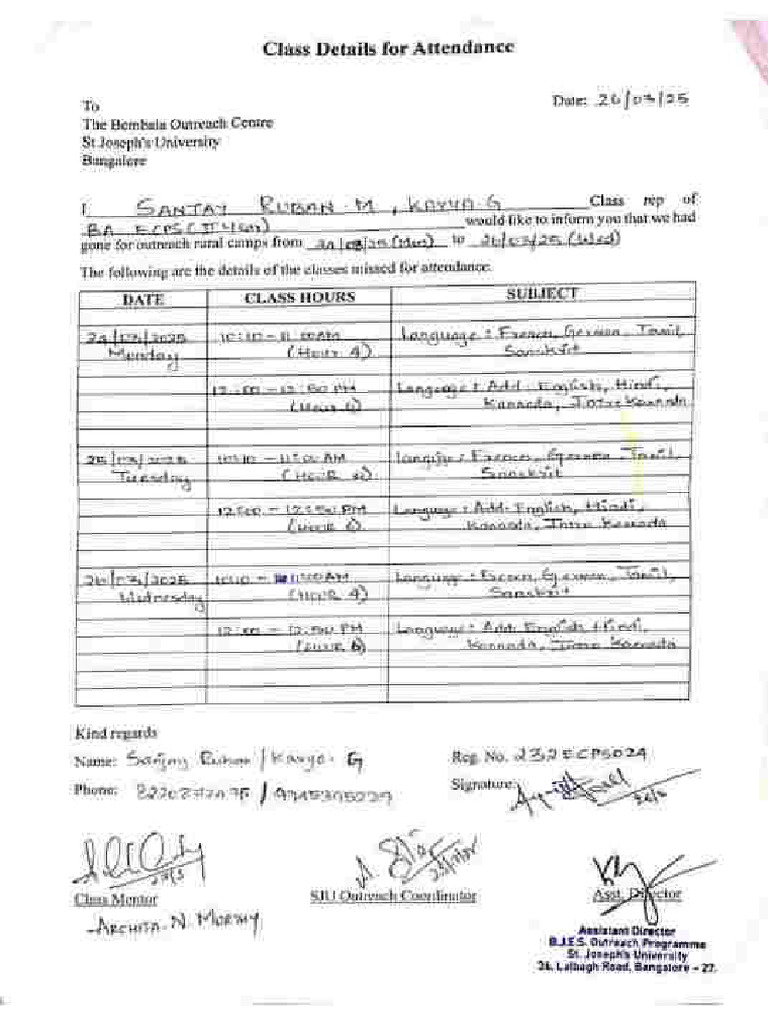 Class Details for Attendance
Date: 26/03/25
To
The Bembala Outreach Centre
St Joseph's University
Bangalore
I SANJAY RUBAN M, KAVYA G Class rep of
BA ECPS would like to inform you that we had
gone for outreach rural camps from 24/03/25 (Mon) to 26/03/25 (Wed)
The following are the details of the classes missed for attendance.
DATE CLASS HOURS SUBJECT
24/03/2025 10:10 - 11:00AM Language: French, German, Tamil,
Monday (Hour 4) Sanskrit
12:00 - 12:50 PM Language: Add. English, Hindi,
(Hour 6) Kannada, Kannada
25/03/2025 10:10 - 11:00 AM Language: French, German, Tamil,
Tuesday (HOUR 4) Sanskrit
12:00 - 12:50 PM Language: Add. English, Hindi,
(HOUR 6) Kannada, Kannada
26/03/2025 10:10 - 11:00AM Language: French, German, Tamil,
Wednesday (HOUR 4) Sanskrit
12:00 - 12:50 PM Language: Add. English Hindi,
(HOUR 6) Kannada, Kannada
Kind regards
Name: Sanjay Ruban / Kavya. G Reg. No. 232ECPS024
Phone: Signature:
26/3
Class Mentor SJU Outreach Coordinator Asst. Director
- ARCHITA. N. MURTHY
Assistant Director
B.J.E.S. Outreach Programme
St. Joseph's University
36, Lalbagh Road, Bangalore - 27.